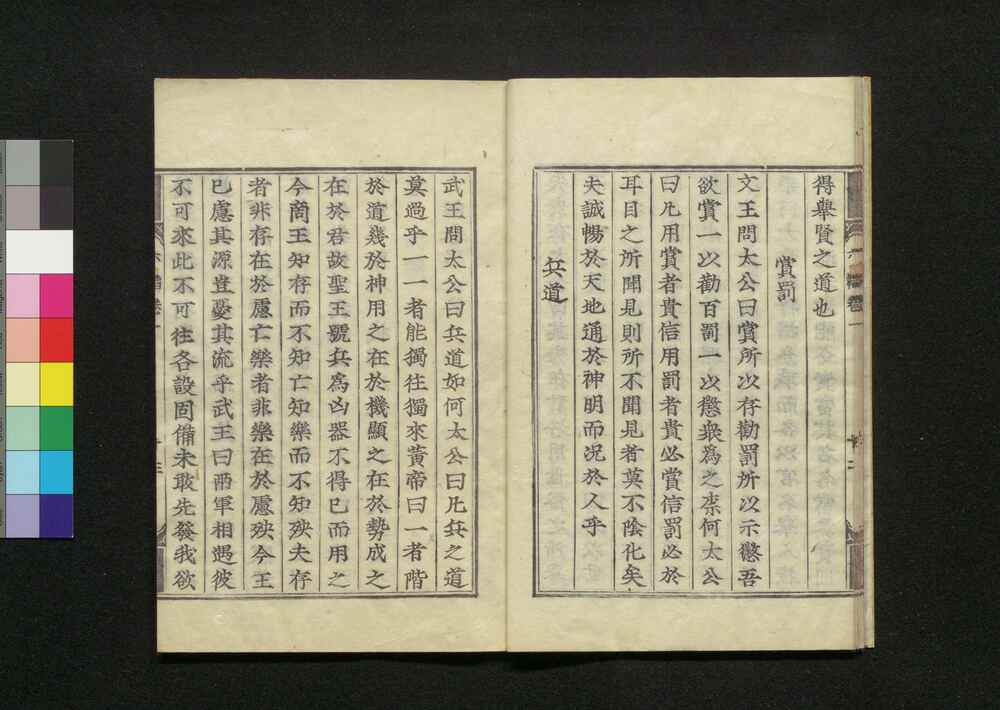 得舉賢之道也
賞罰
文王問太公曰賞所以存勸罰所以示懲吾
欲賞一以勸百罰一以懲衆為之柰何太公
曰凡用賞者貴信用罰者貴必賞信罰必於
耳目之所聞見則所不聞見者莫不陰化矣
夫誠暢於天地通於神明而况於人乎
兵道
武王問太公曰兵道如何太公曰凡兵之道
莫過乎一一者能獨往獨來黃帝曰一者階
於道幾於神用之在於機顯之在於勢成之
在於君故聖王號兵為凶器不得已而用之
今商王知存而不知亡知樂而不知殃夫存
者非存在於慮亡樂者非樂在於慮殃今王
已慮其源豈憂其流乎武王曰兩軍相遇彼
不可來此不可往各設固備未敢先發我欲